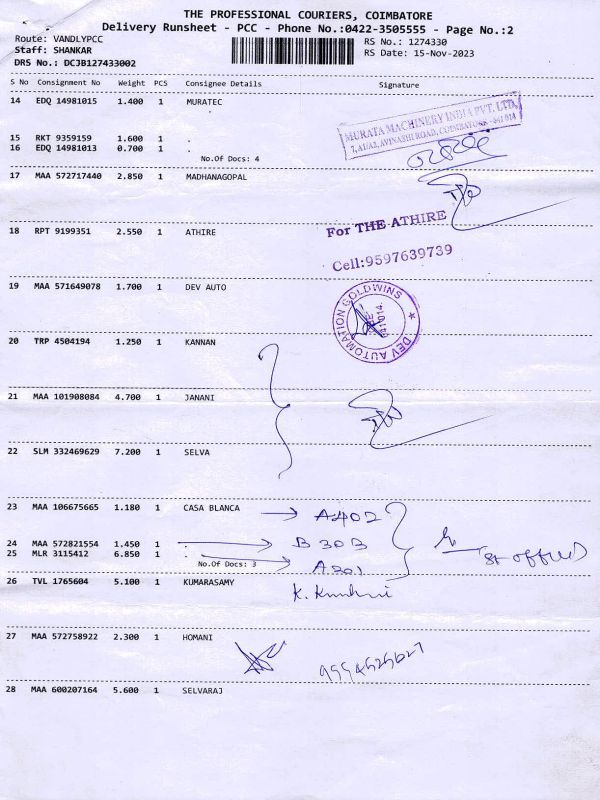 THE PROFESSIONAL COURIERS, COIMBATORE
Delivery Runsheet - PCC - Phone No.:0422-3505555 - Page No.:2
Route: VANDLYPCC RS No.: 1274330
Staff: SHANKAR RS Date: 15-Nov-2023
DRS No.: DCJB127433002
S No Consignment No Weight PCS Consignee Details Signature
14 EDQ 14981015 1.400 1 MURATEC
MURATA MACHINERY INDIA PVT. LTD,
7, AVINASHI ROAD, COIMBATORE - 641 014
15 RKT 9359159 1.600 1 .
16 EDQ 14981013 0.700 1 .
No.Of Docs: 4
17 MAA 572717440 2.850 1 MADHANAGOPAL
18 RPT 9199351 2.550 1 ATHIRE
For THE ATHIRE
Cell:9597639739
19 MAA 571649078 1.700 1 DEV AUTO
DEV AUTOMATION GOLDWINS ★
641 014
20 TRP 4504194 1.250 1 KANNAN
21 MAA 101908084 4.700 1 JANANI
22 SLM 332469629 7.200 1 SELVA
23 MAA 106675665 1.180 1 CASA BLANCA → A402
24 MAA 572821554 1.450 1 . → B 303
25 MLR 3115412 6.850 1 . → A301
No.Of Docs: 3
26 TVL 1765604 5.100 1 KUMARASAMY
27 MAA 572758922 2.300 1 HOMANI
28 MAA 600207164 5.600 1 SELVARAJ